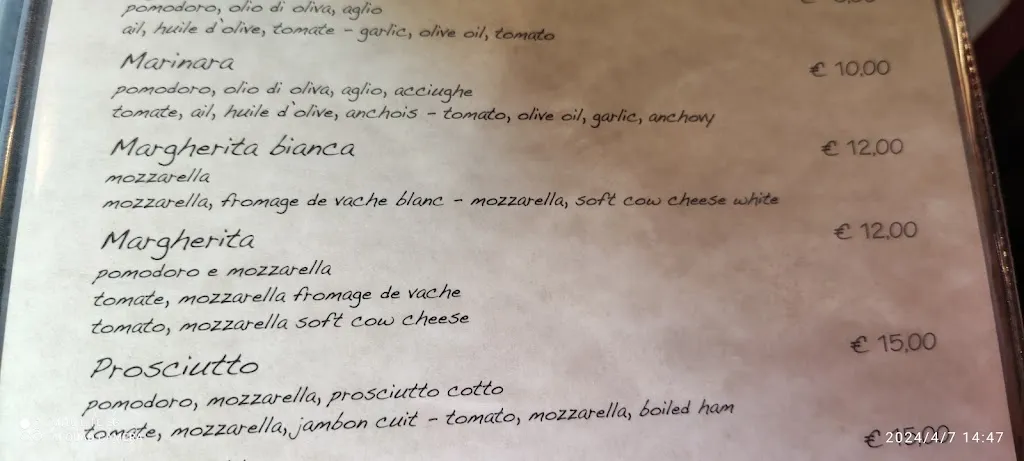 pomodoro, olio di oliva, aglio
ail, huile d'olive, tomate - garlic, olive oil, tomato
Marinara € 10,00
pomodoro, olio di oliva, aglio, acciughe
tomate, ail, huile d'olive, anchois - tomato, olive oil, garlic, anchovy
Margherita bianca € 12,00
mozzarella
mozzarella, fromage de vache blanc - mozzarella, soft cow cheese white
Margherita € 12,00
pomodoro e mozzarella
tomate, mozzarella fromage de vache
tomato, mozzarella soft cow cheese
Prosciutto € 15,00
pomodoro, mozzarella, prosciutto cotto
tomate, mozzarella, jambon cuit - tomato, mozzarella, boiled ham
€ 15,00
2024/4/7 14:47